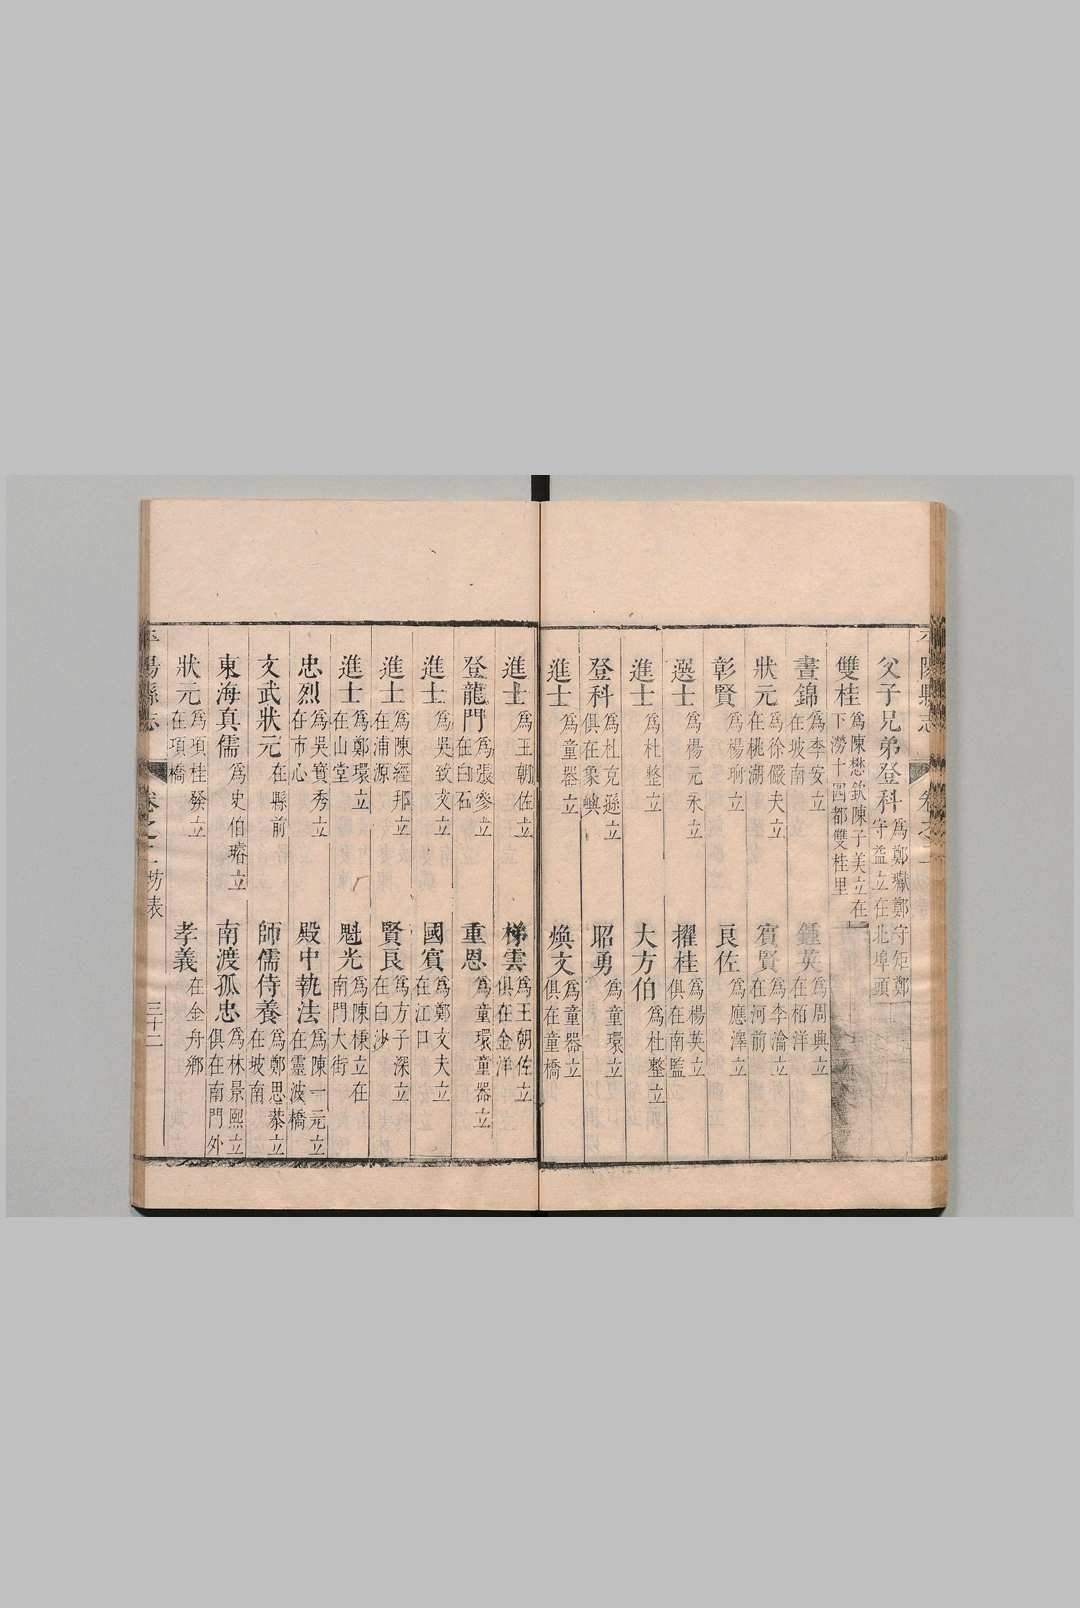 父子兄弟登科 爲鄭瓛鄭守矩鄭守益立在北埠頭
雙桂 爲陳懋欽陳子美立在下澇十四都雙桂里
晝錦 爲李安立在坡南 鍾英 爲周典立在栢洋
狀元 爲徐儼夫立在桃湖 賓賢 爲李瀹立在河前
彰賢 爲楊珦立 良佐 爲應澤立
選士 爲楊元永立 擢桂 爲楊英立俱在南監
進士 爲杜整立 大方伯 爲杜整立
登科 爲杜克遜立俱在象㠘 昭勇 爲童環立
進士 爲童器立 煥文 爲童器立俱在童橋
進士 爲王朝佐立 梯雲 爲王朝佐立俱在金洋
登龍門 爲張參立在白石 重恩 爲童環童器立
進士 爲吳致文立 國賓 爲鄭文夫立在江口
進士 爲陳經邦立在浦源 賢良 爲方子深立在白沙
進士 爲鄭環立在山堂 魁光 爲陳棣立在南門大街
忠烈 爲吳寳秀立在市心 殿中執法 爲陳一元立在靈波橋
文武狀元 在縣前 師儒侍養 爲鄭思恭立在坡南
東海真儒 爲史伯璿立 南渡孤忠 爲林景熙立俱在南門外
狀元 爲項桂發立在項橋 孝義 在金舟鄉
平陽縣志 卷之二 坊表 三十二